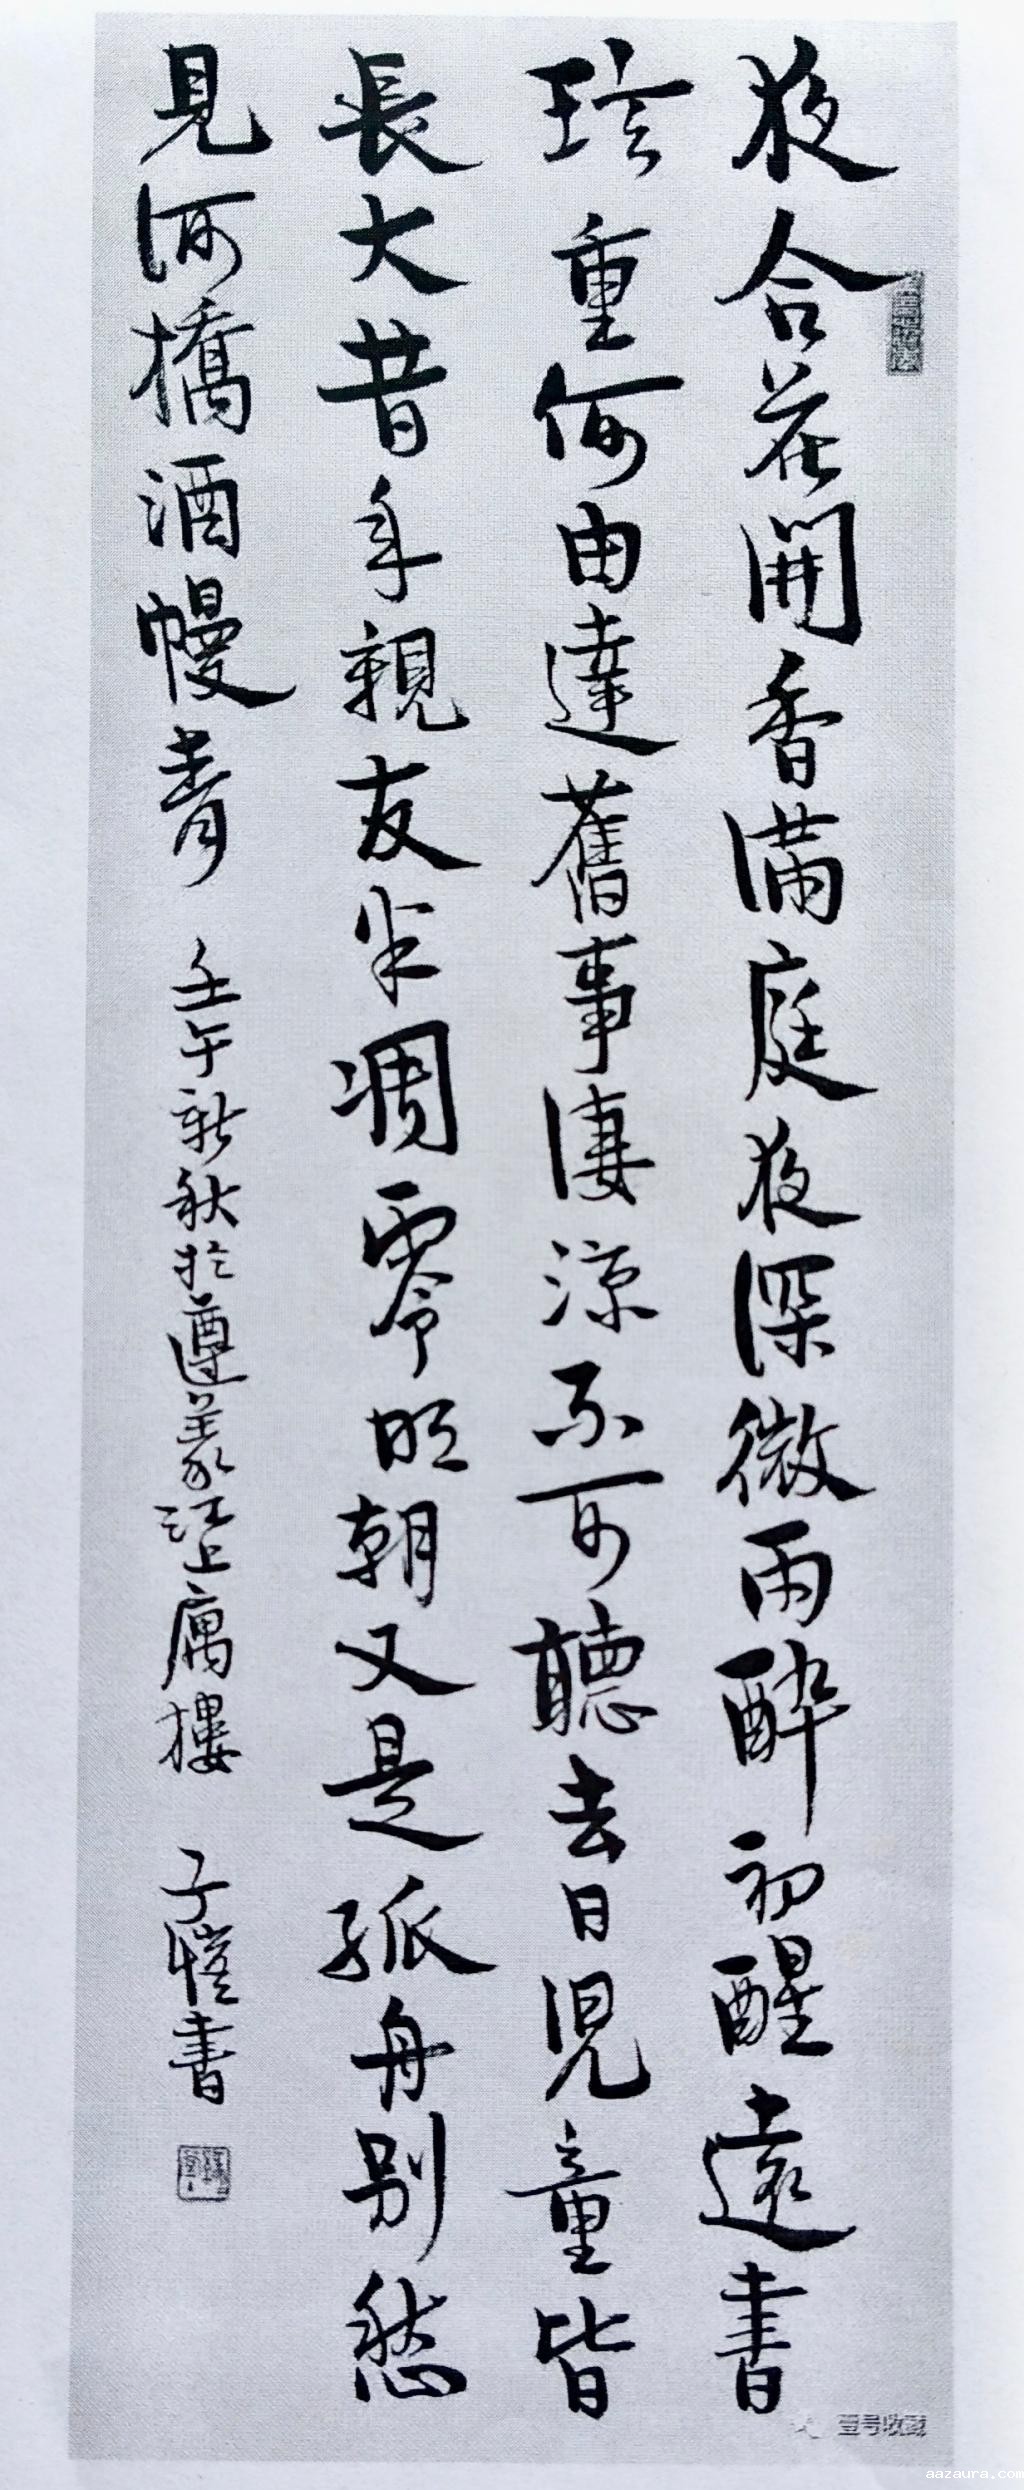 夜合花開香滿庭夜深微雨醉初醒遠書
珍重何由達舊事淒涼不可聽去日兒童皆
長大昔年親友半凋零明朝又是孤舟別愁
見河橋酒幔青
壬午新秋於遵義江上寓樓
子愷書
壹号收藏
aazaura.com